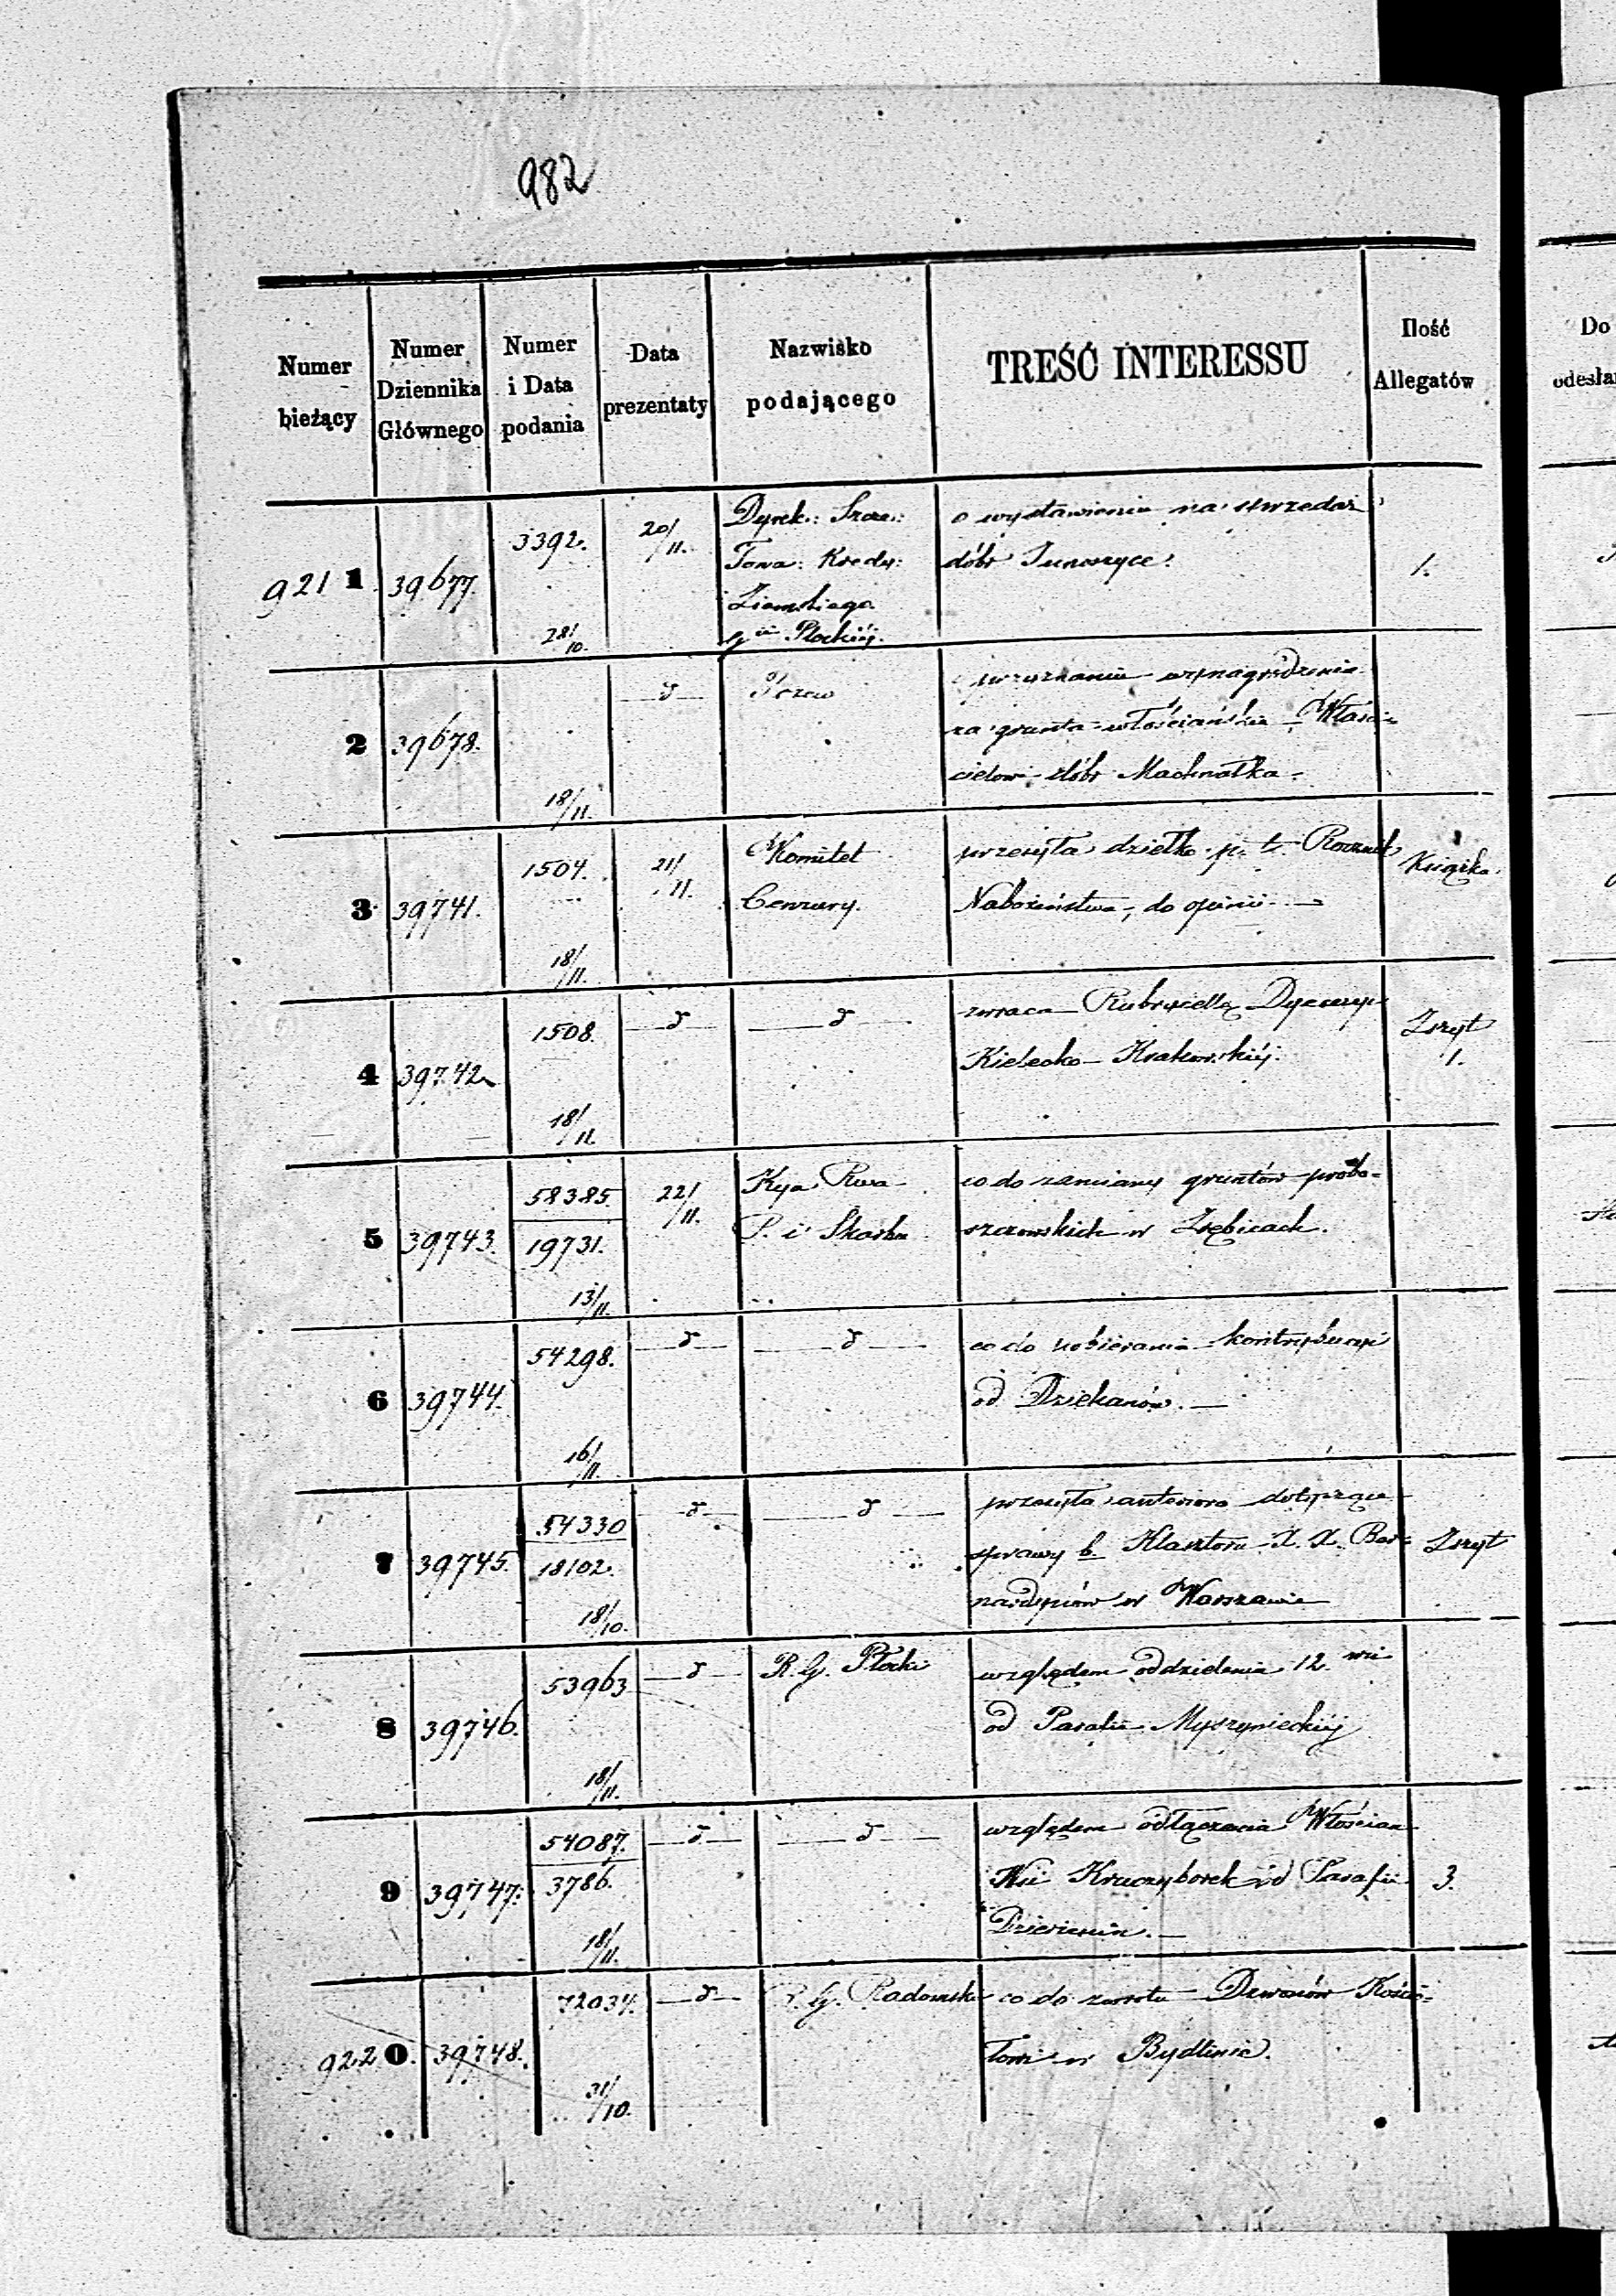 982
Numer bieżący
Numer Dziennika Głównego
Numer i Data podania
Data prezentaty
Nazwisko podającego
TREŚĆ INTERESSU
Ilość Allegatów
Do
odesła
921 1 39677. 3392. 28/10. 20/11. Dyrek: Szcze:
Towa: Kredy:
Ziemskiego
Gii Płockiéj.
o wystawienie na sprzedaż
dóbr
1.
2 39678. 18/11. d
przyznanie wynagrodzenia
za grunta włościańskie Właści-
cielowi dóbr Machnatka
3 39741. 1504. 18/11. 21/11. Komitet
Cenzury.
przesyła dziełko p. t. Rocznik
Nabożeństwa, do opinii
1
Książka
4 39742 1508. 18/11. d d
zwraca Rubrycellę Dyecezyi
Kielecko Krakowskiéj.
Zszyt
1.
5 39743. 58385. 19731. 13/11. 22/11. Kya Rwa
P. i Skarbu
co do zamiany gruntów probo-
szczowskich w Zrębicach.
6 39744. 54298. 16/11. d d
co do pobierania kontrybucyi
od Dziekanów.
7 39745. 54330 18102. 18/10. d d
przesyła anteriora dotyczące
sprawy b. Klasztoru X. X. Ber-
nardynów w Warszawie
Zszyt
8 39746. 53963 18/11. d R. G. Płocki
względem oddzielenia 12 wsi
od Parafii Myszynieckiéj
9 39747. 54087. 3786. 18/11. d d
względem odłączenia Włościan
Wsi Kruczyborek od Parafii
3.
922 0. 39748. 72034. 31/10. d R. G. Radomski
co do zwrotu Dzwonów Kościo-
łowi w Bydlinie.